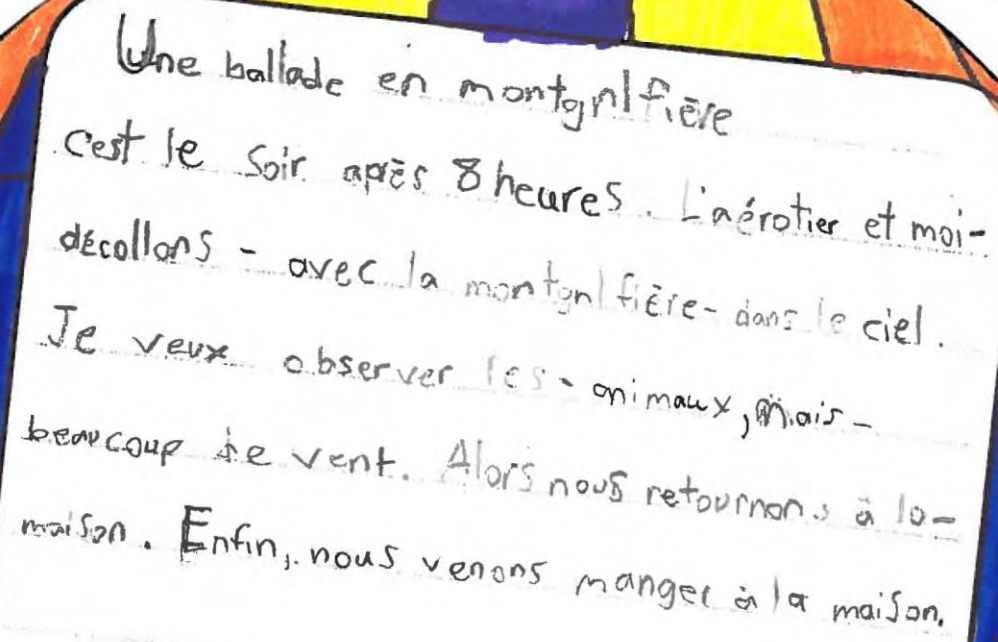 Une ballade en montgnlfière
c'est le soir après 8 heures. L'aérotier et moi-
décollons - avec la montgnlfière - dans le ciel.
Je veux observer les - animaux, mais -
beaucoup de vent. Alors nous retournons à la-
maison. Enfin, nous venons manger à la maison.